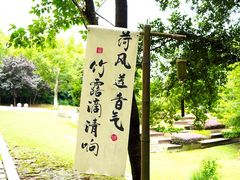 荷风送香气
竹露滴清响